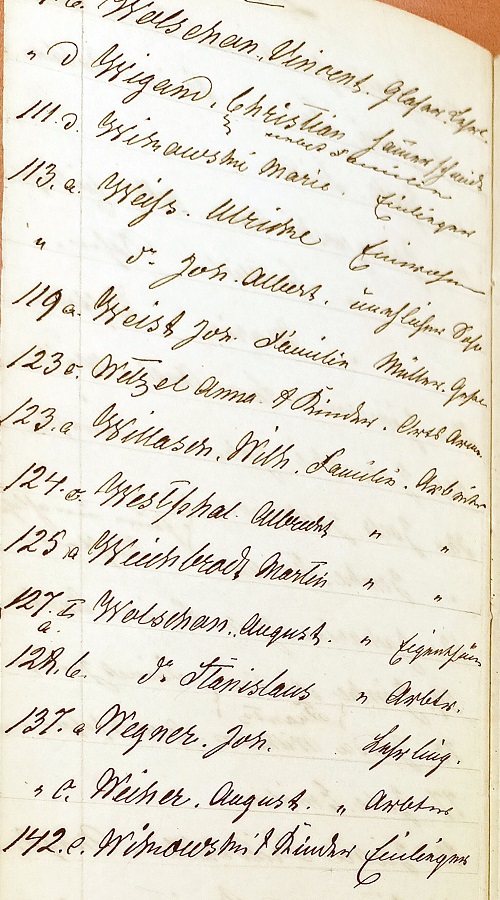 Wolschan, Vincent. Glaser Lehrl.
" d Wigand, Christian
nebst Familie
111. d. Witnowski Marie. Einlieger
113. a. Weiß. Ulricke Einwohn
" do Joh. Albert. unehlicher Sohn
119 a. Weist Joh. Familie Müller. Gesel
123 c. Wetzel Anna. & Kinder. Orts Arme
123. a Willasch. Wilh. Familie. Arbeiter
124. c. Westphal. Albrecht " "
125. a Weichbrodt Martin " "
127. I a. Wolschan. August. " Eigenthüm
128. b. do Stanislaus " Arbtr.
137. a Wegner. Joh. Lehrling.
" c. Weiher. August. " Arbtr
142. c. Witnowski & Kinder Einlieger